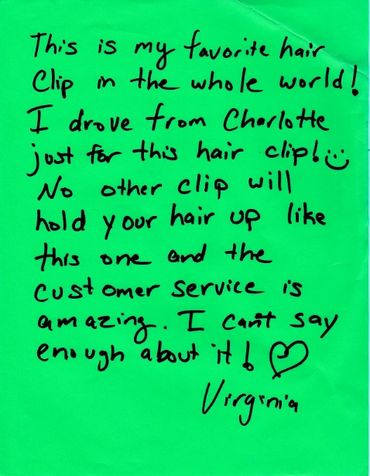 This is my favorite hair
Clip in the whole world!
I drove from Charlotte
just for this hair clip!
No other clip will
hold your hair up like
this one and the
customer service is
amazing. I can't say
enough about it!
Virginia